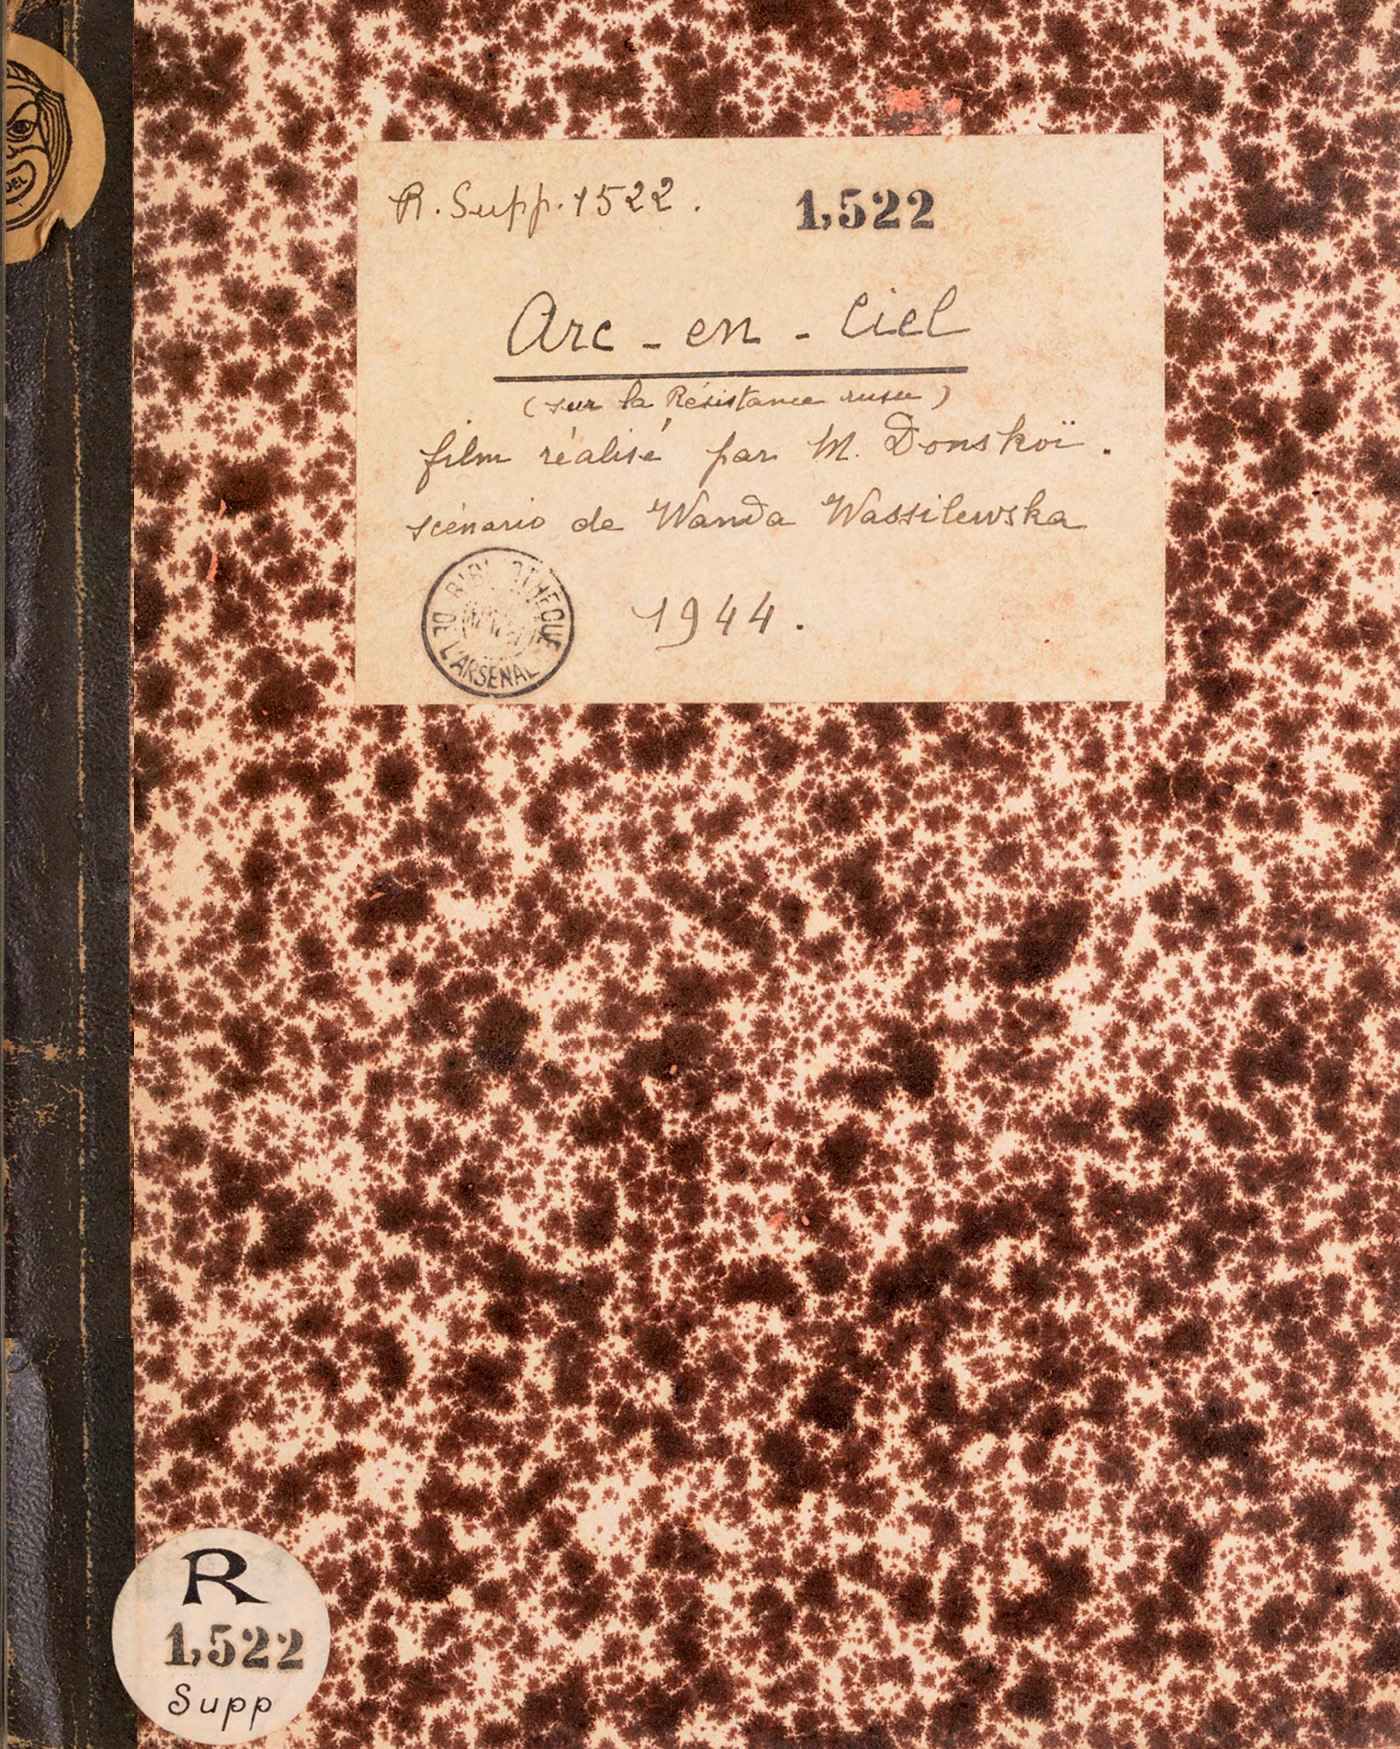 R. Supp. 1522.
1,522
Arc-en-Ciel
(sur la Résistance russe)
film réalisé par M. Donskoï.
scénario de Wanda Wassilewska
1944.
BIBLIOTHEQUE DE L'ARSENAL
DEL
R
1,522
Supp